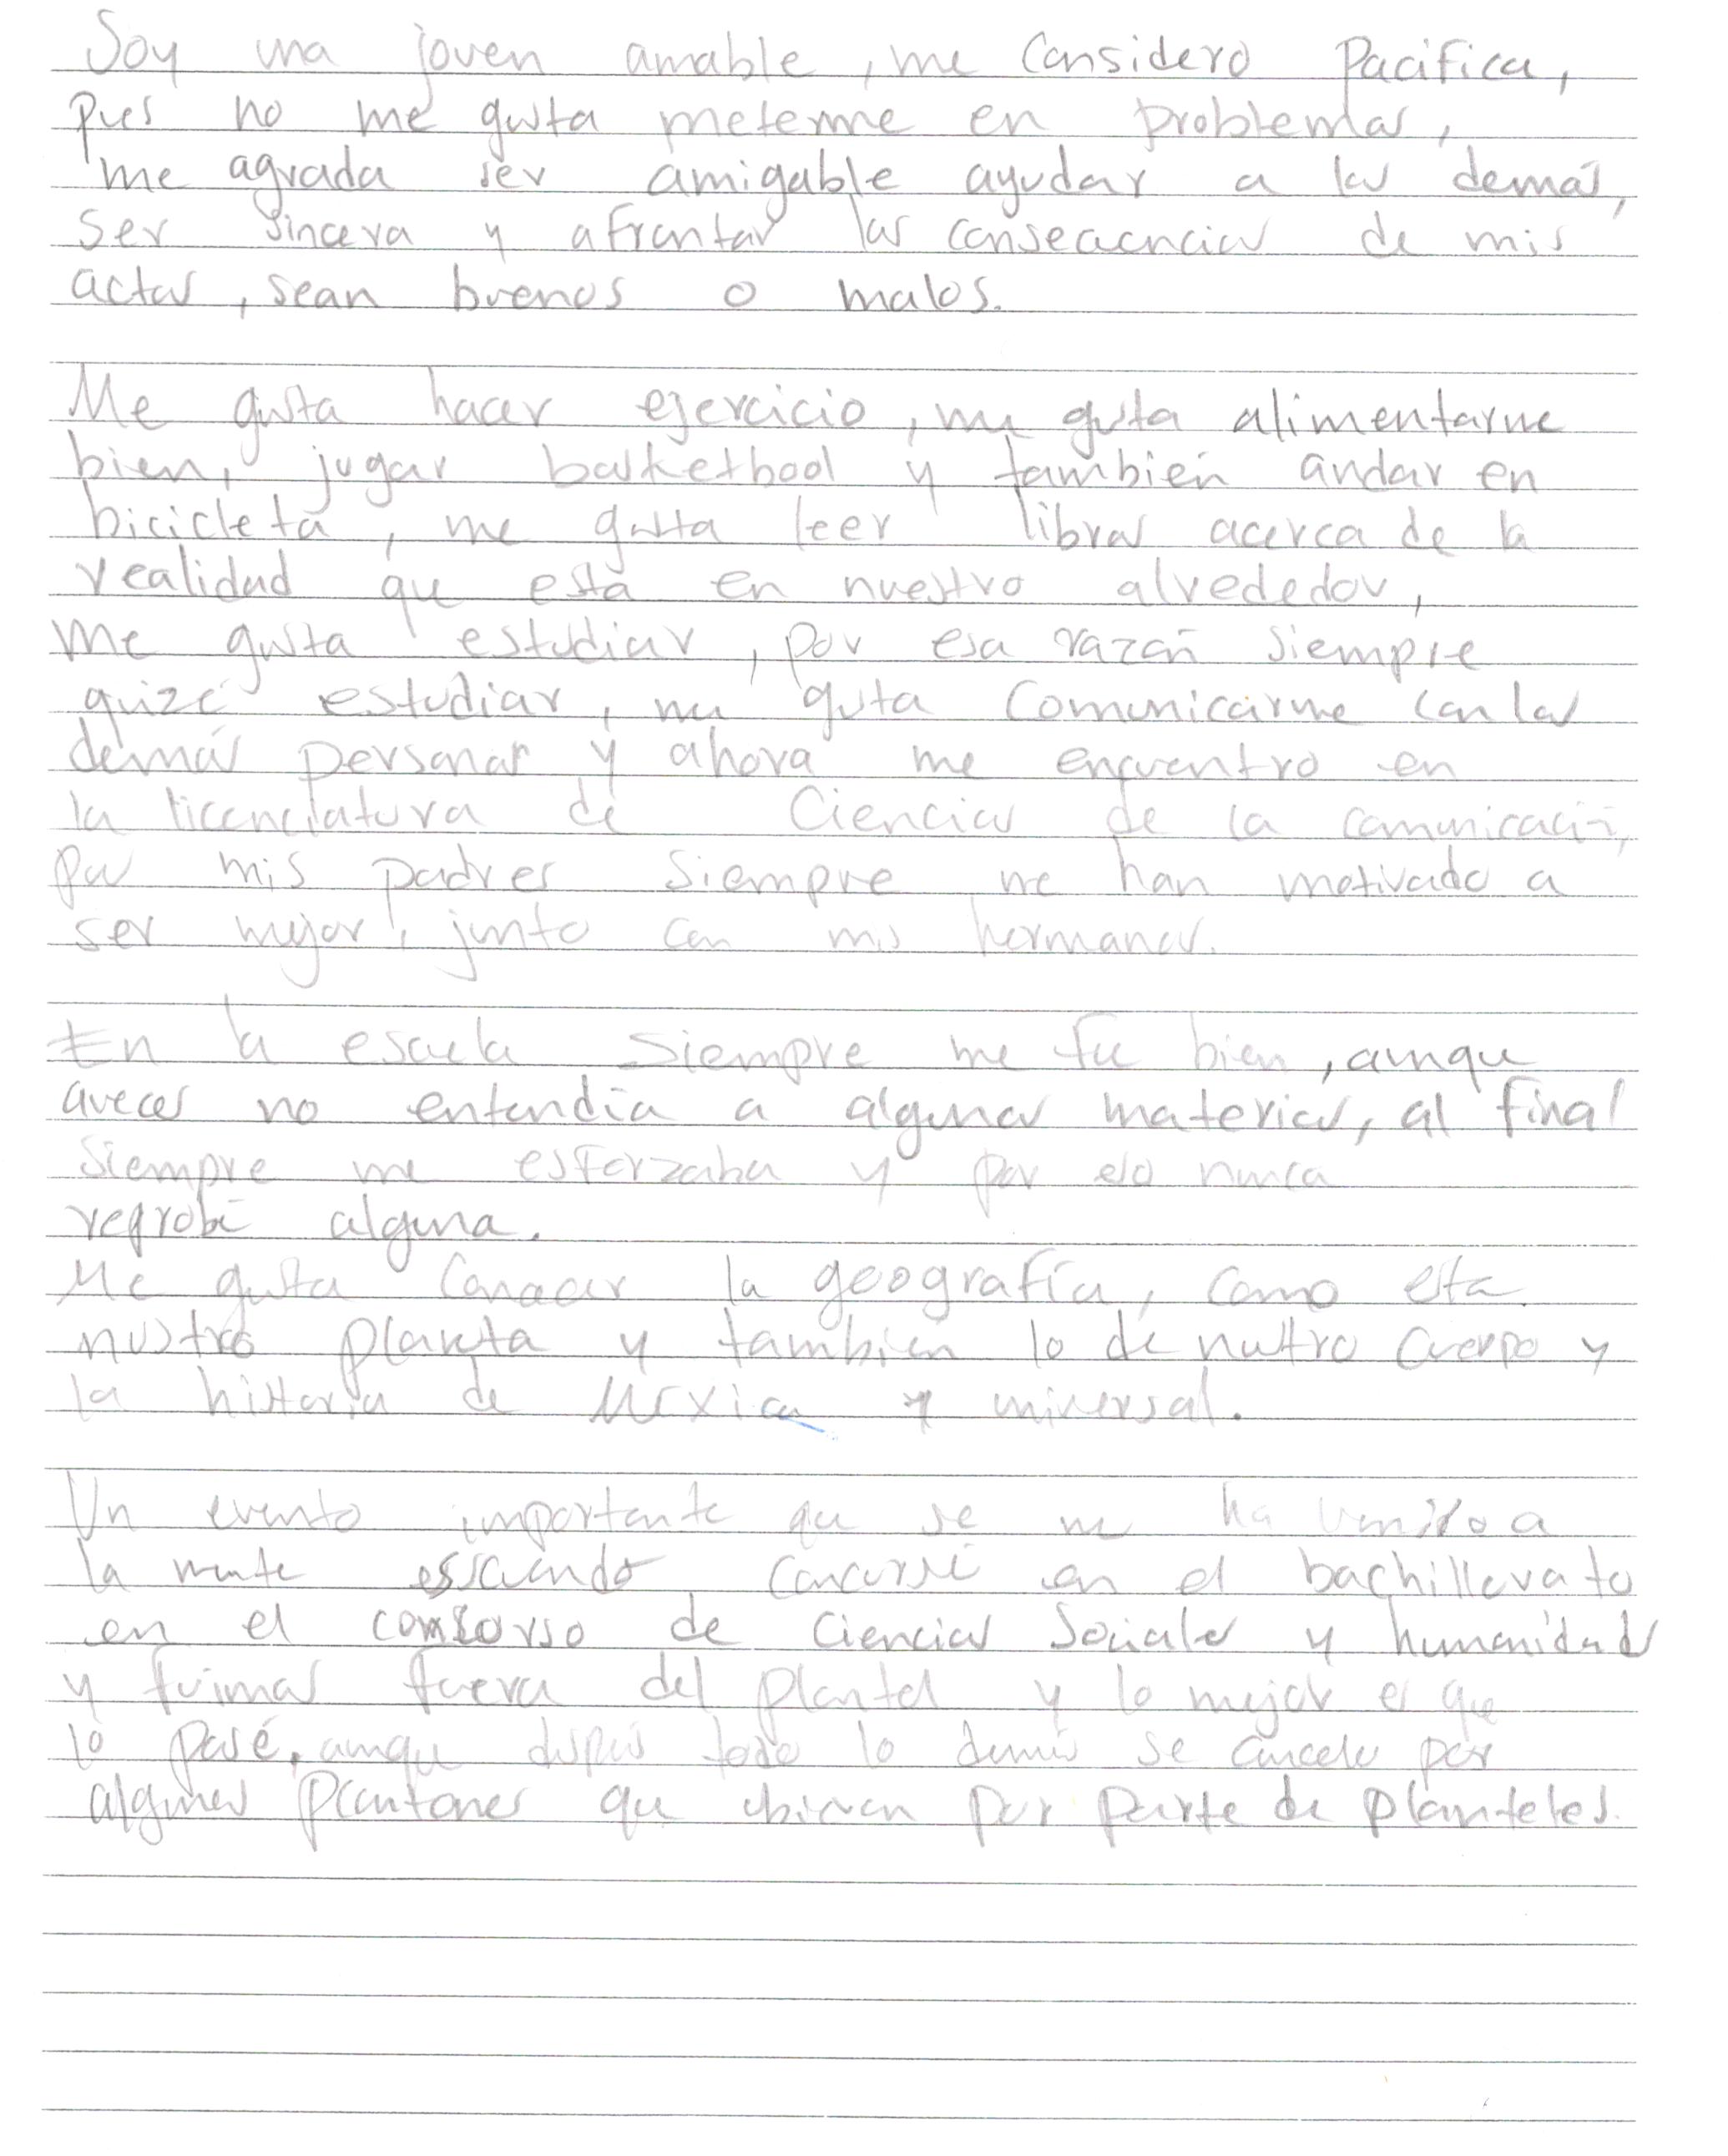 Soy una joven amable, me considero Pacifica,
pues no me gusta meterme en problemas,
me agrada ser amigable ayudar a los demás,
ser sincera y afrontar las consecuencias de mis
actos, sean buenos o malos.
Me gusta hacer ejercicio, me gusta alimentarme
bien, jugar basketbool y también andar en
bicicleta, me gusta leer libros acerca de la
realidad que está en nuestro alrededor,
me gusta estudiar, por esa razón siempre
quizé estudiar, me gusta comunicarme con las
demás personas y ahora me encuentro en
la licenciatura de Ciencias de la comunicación,
por mis padres siempre me han motivado a
ser mejor, junto con mis hermanos.
En la escuela siempre me fue bien, aunque
aveces no entendía a algunas materias, al final
siempre me esforzaba y por eso nunca
reprobé alguna.
Me gusta conocer la geografía, como esta
nustro planeta y también lo de nuestro cuerpo y
la historia de México y universal.
Un evento importante que se me ha venido a
la mente es cuando concursé en el bachillerato
en el de Ciencias Sociales y humanidades
y fuimos fuera del plantel y lo mejor es que
lo pasé, aunque después todo lo demás se cancelo por
algunos plantones que por parte de planteles.